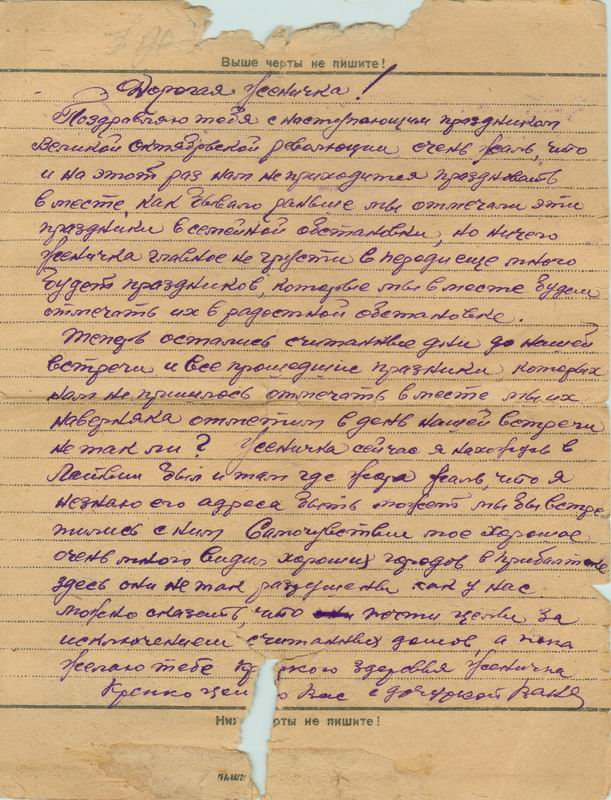 Выше черты не пишите!
Дорогая Ксеничка!
Поздравляю тебя с наступающим праздником
Великой октябрьской революции очень жаль, что
и на этот раз нам не приходится праздновать
вместе, как бывало раньше мы отмечали эти
праздники в семейной обстановке, но ничего
Ксеничка главное не грусти впереди еще много
будет праздников, которые мы вместе будем
отмечать их в радостной обстановке.
Теперь остались считанные дни до нашей
встречи и все прошедшие празники, которых
нам не пришлось отмечать вместе мы их
наверняка отметим в день нашей встречи
не так ли? Ксеничка сейчас я нахожусь в
Латвии был и там где жаль, что я
незнаю его адреса быть может мы бы встре
тились с ним Самочувствие мое хорошое
очень много видил хороших городов в прибалтике
здесь они не так разрушены как у нас
можно сказать, что почти целы за
исключением считанных домов а пока
желаю тебе крепкого здоровья Ксеничка
Крепко Вас с дочуркой Ваня
черты не пишите!